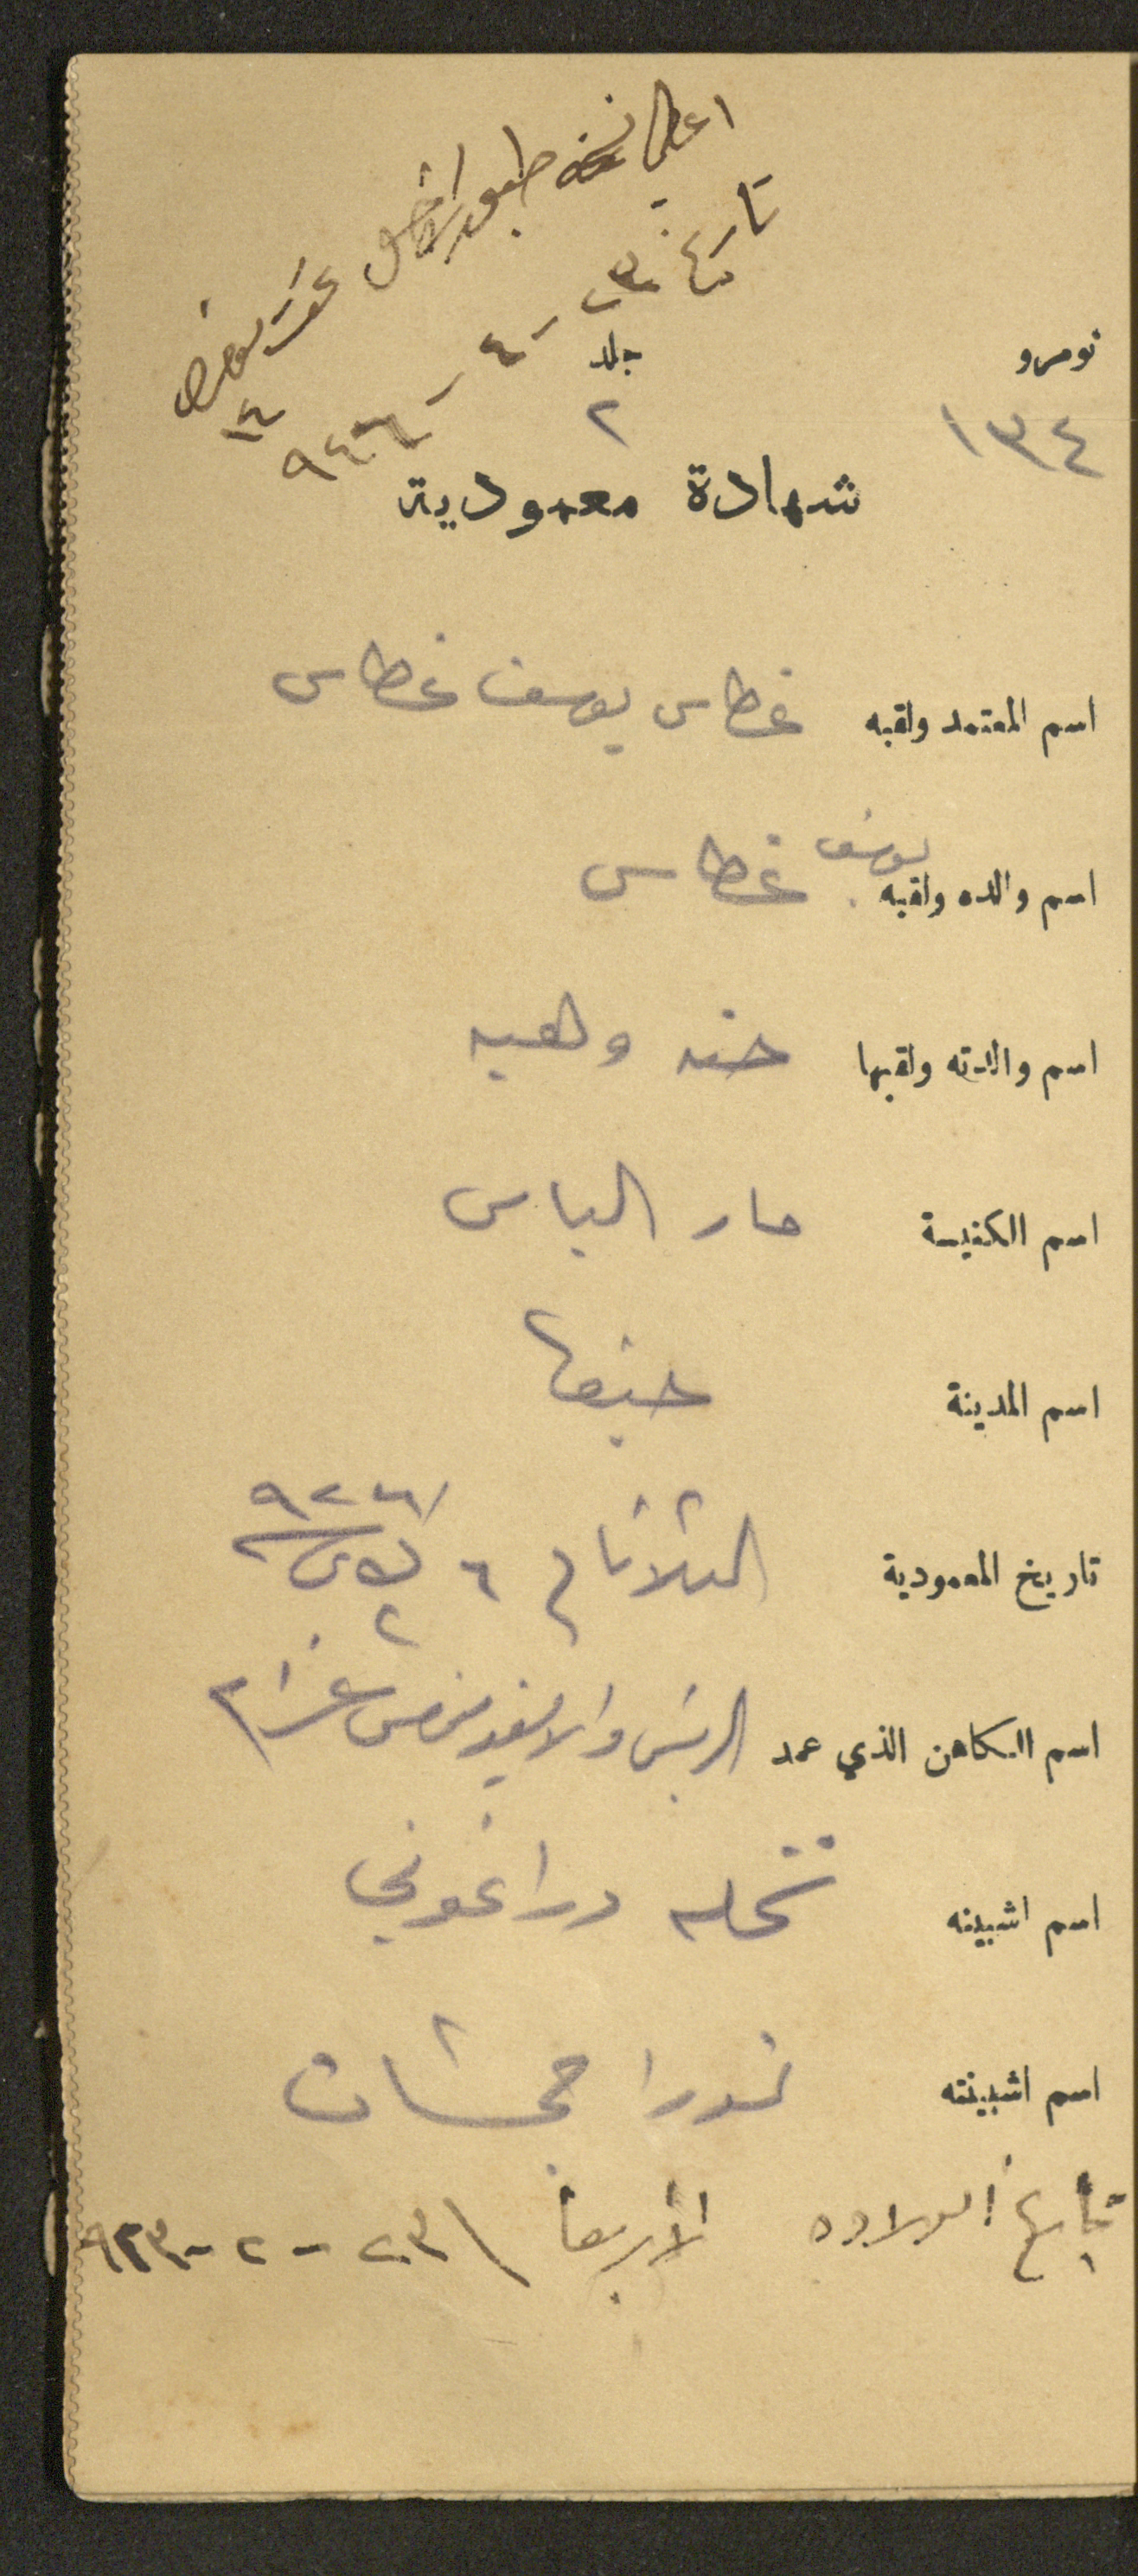 اعطي نسخه طبق الاصل
تاريخ ٣٠ - ٤ - ٩٤٦
نومرو جلد
١٣٤ ٢
شهادة معمودية
اسم المعتمد ولقبه غطاس يوسف غطاس
اسم والده ولقبه يوسف غطاس
اسم والدته ولقبها حنه وهبه
اسم الكنيسة مار الياس
اسم المدينة حيفا
تاريخ المعمودية الثلاثاء ٦ ك٢ ٩٢٦
اسم الكاهن الذي عمد
اسم اشبينه نخله دراغوني
اسم اشبينته نورا جمشات
تاريخ الولاده الأربعا ٢٣ - ٢ - ٩٢٣